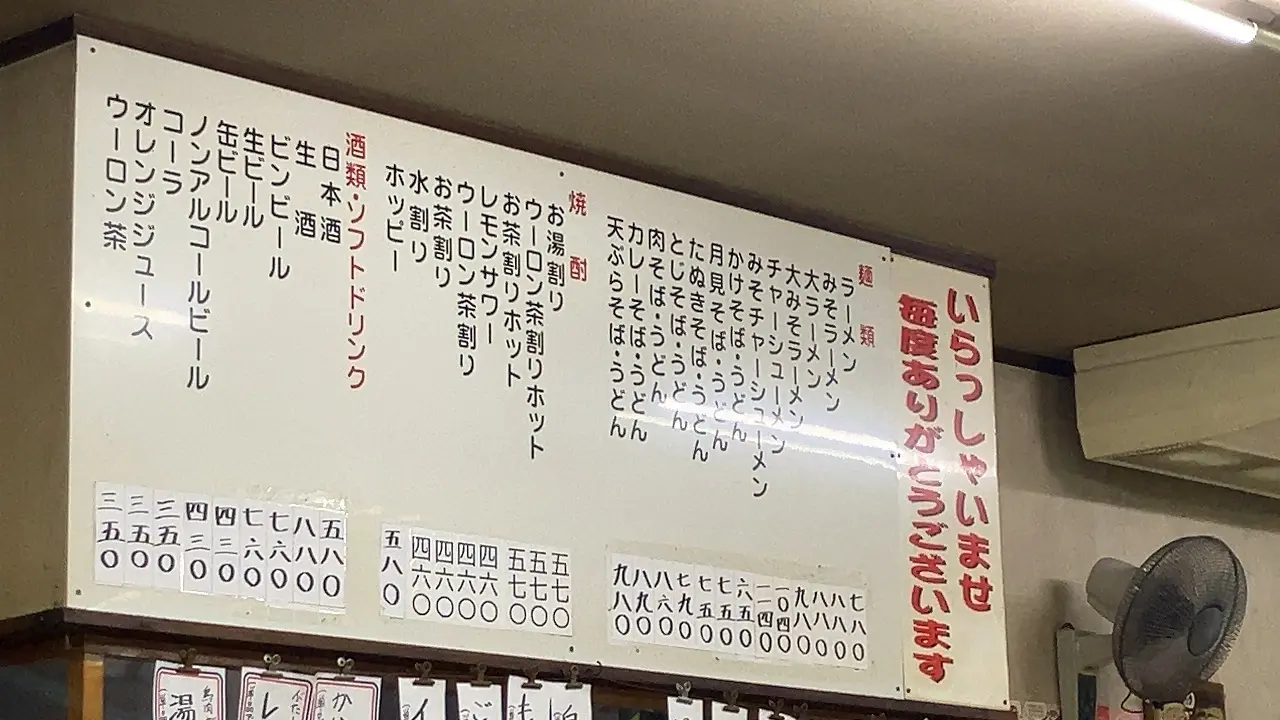 いらっしゃいませ
毎度ありがとうございます
麺類
ラーメン 七八〇
みそラーメン 八八〇
大ラーメン 八八〇
大みそラーメン 九八〇
チャーシューメン 一〇四〇
みそチャーシューメン 一一四〇
かけそば・うどん 六五〇
月見そば・うどん 七五〇
たぬきそば・うどん 七五〇
とじそば・うどん 七九〇
肉そば・うどん 八六〇
カレーそば・うどん 八九〇
天ぷらそば・うどん 九八〇
焼酎
お湯割り 五七〇
ウーロン茶割りホット 五七〇
お茶割りホット 五七〇
レモンサワー 四六〇
ウーロン茶割り 四六〇
お茶割り 四六〇
水割り 四六〇
ホッピー 五八〇
酒類・ソフトドリンク
日本酒 五八〇
生酒 八八〇
ビンビール 七六〇
生ビール 七六〇
缶ビール 四三〇
ノンアルコールビール 四三〇
コーラ 三五〇
オレンジジュース 三五〇
ウーロン茶 三五〇